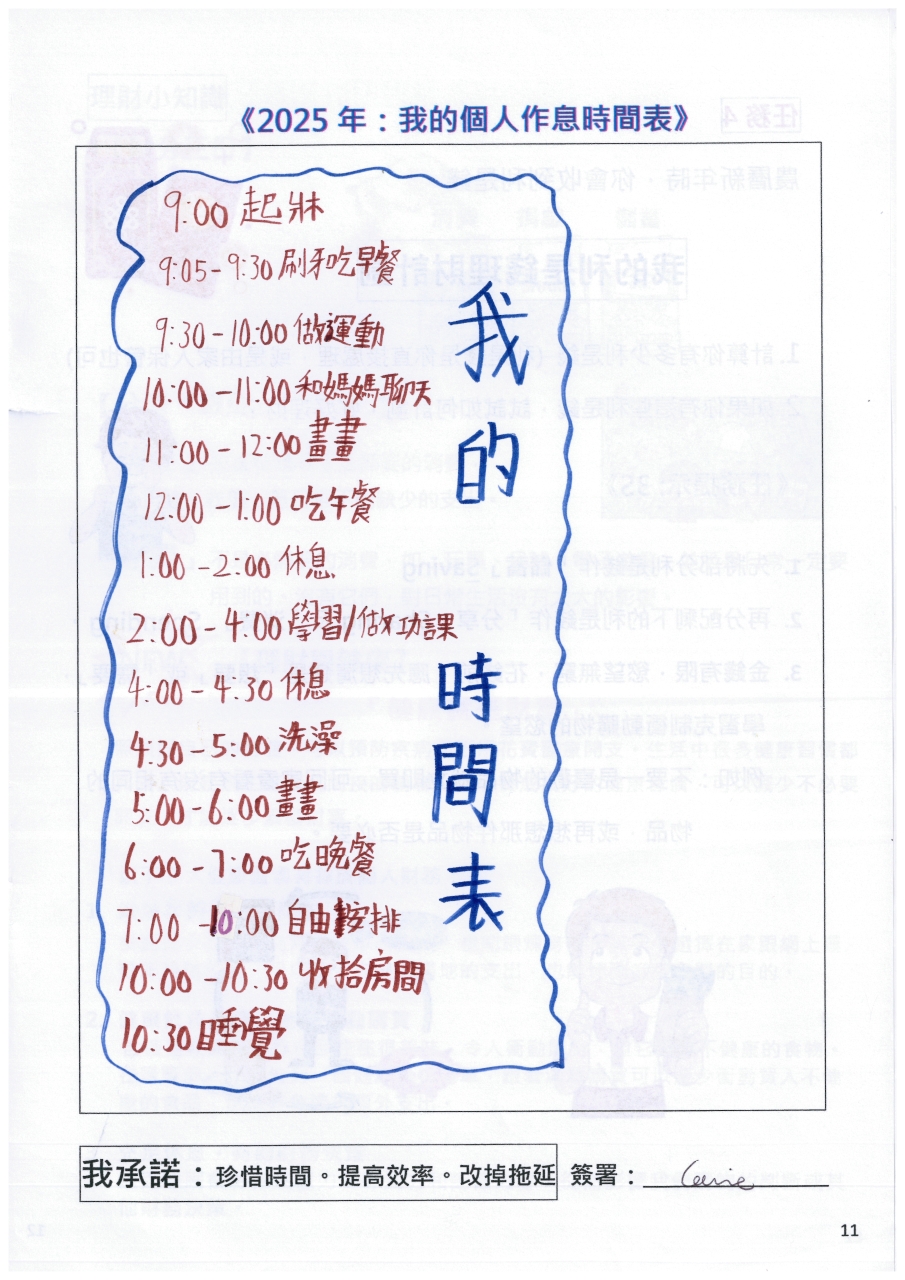 《2025 年：我的個人作息時間表》
9:00 起牀
9:05-9:30 刷牙吃早餐
9:30-10:00 做運動
10:00-11:00 和媽媽聊天
11:00-12:00 畫畫
12:00-1:00 吃午餐
1:00-2:00 休息
2:00-4:00 學習/做功課
4:00-4:30 休息
4:30-5:00 洗澡
5:00-6:00 畫畫
6:00-7:00 吃晚餐
7:00-10:00 自由按排
10:00-10:30 收拾房間
10:30 睡覺
我的時間表
我承諾：珍惜時間。提高效率。改掉拖延 簽署：
11